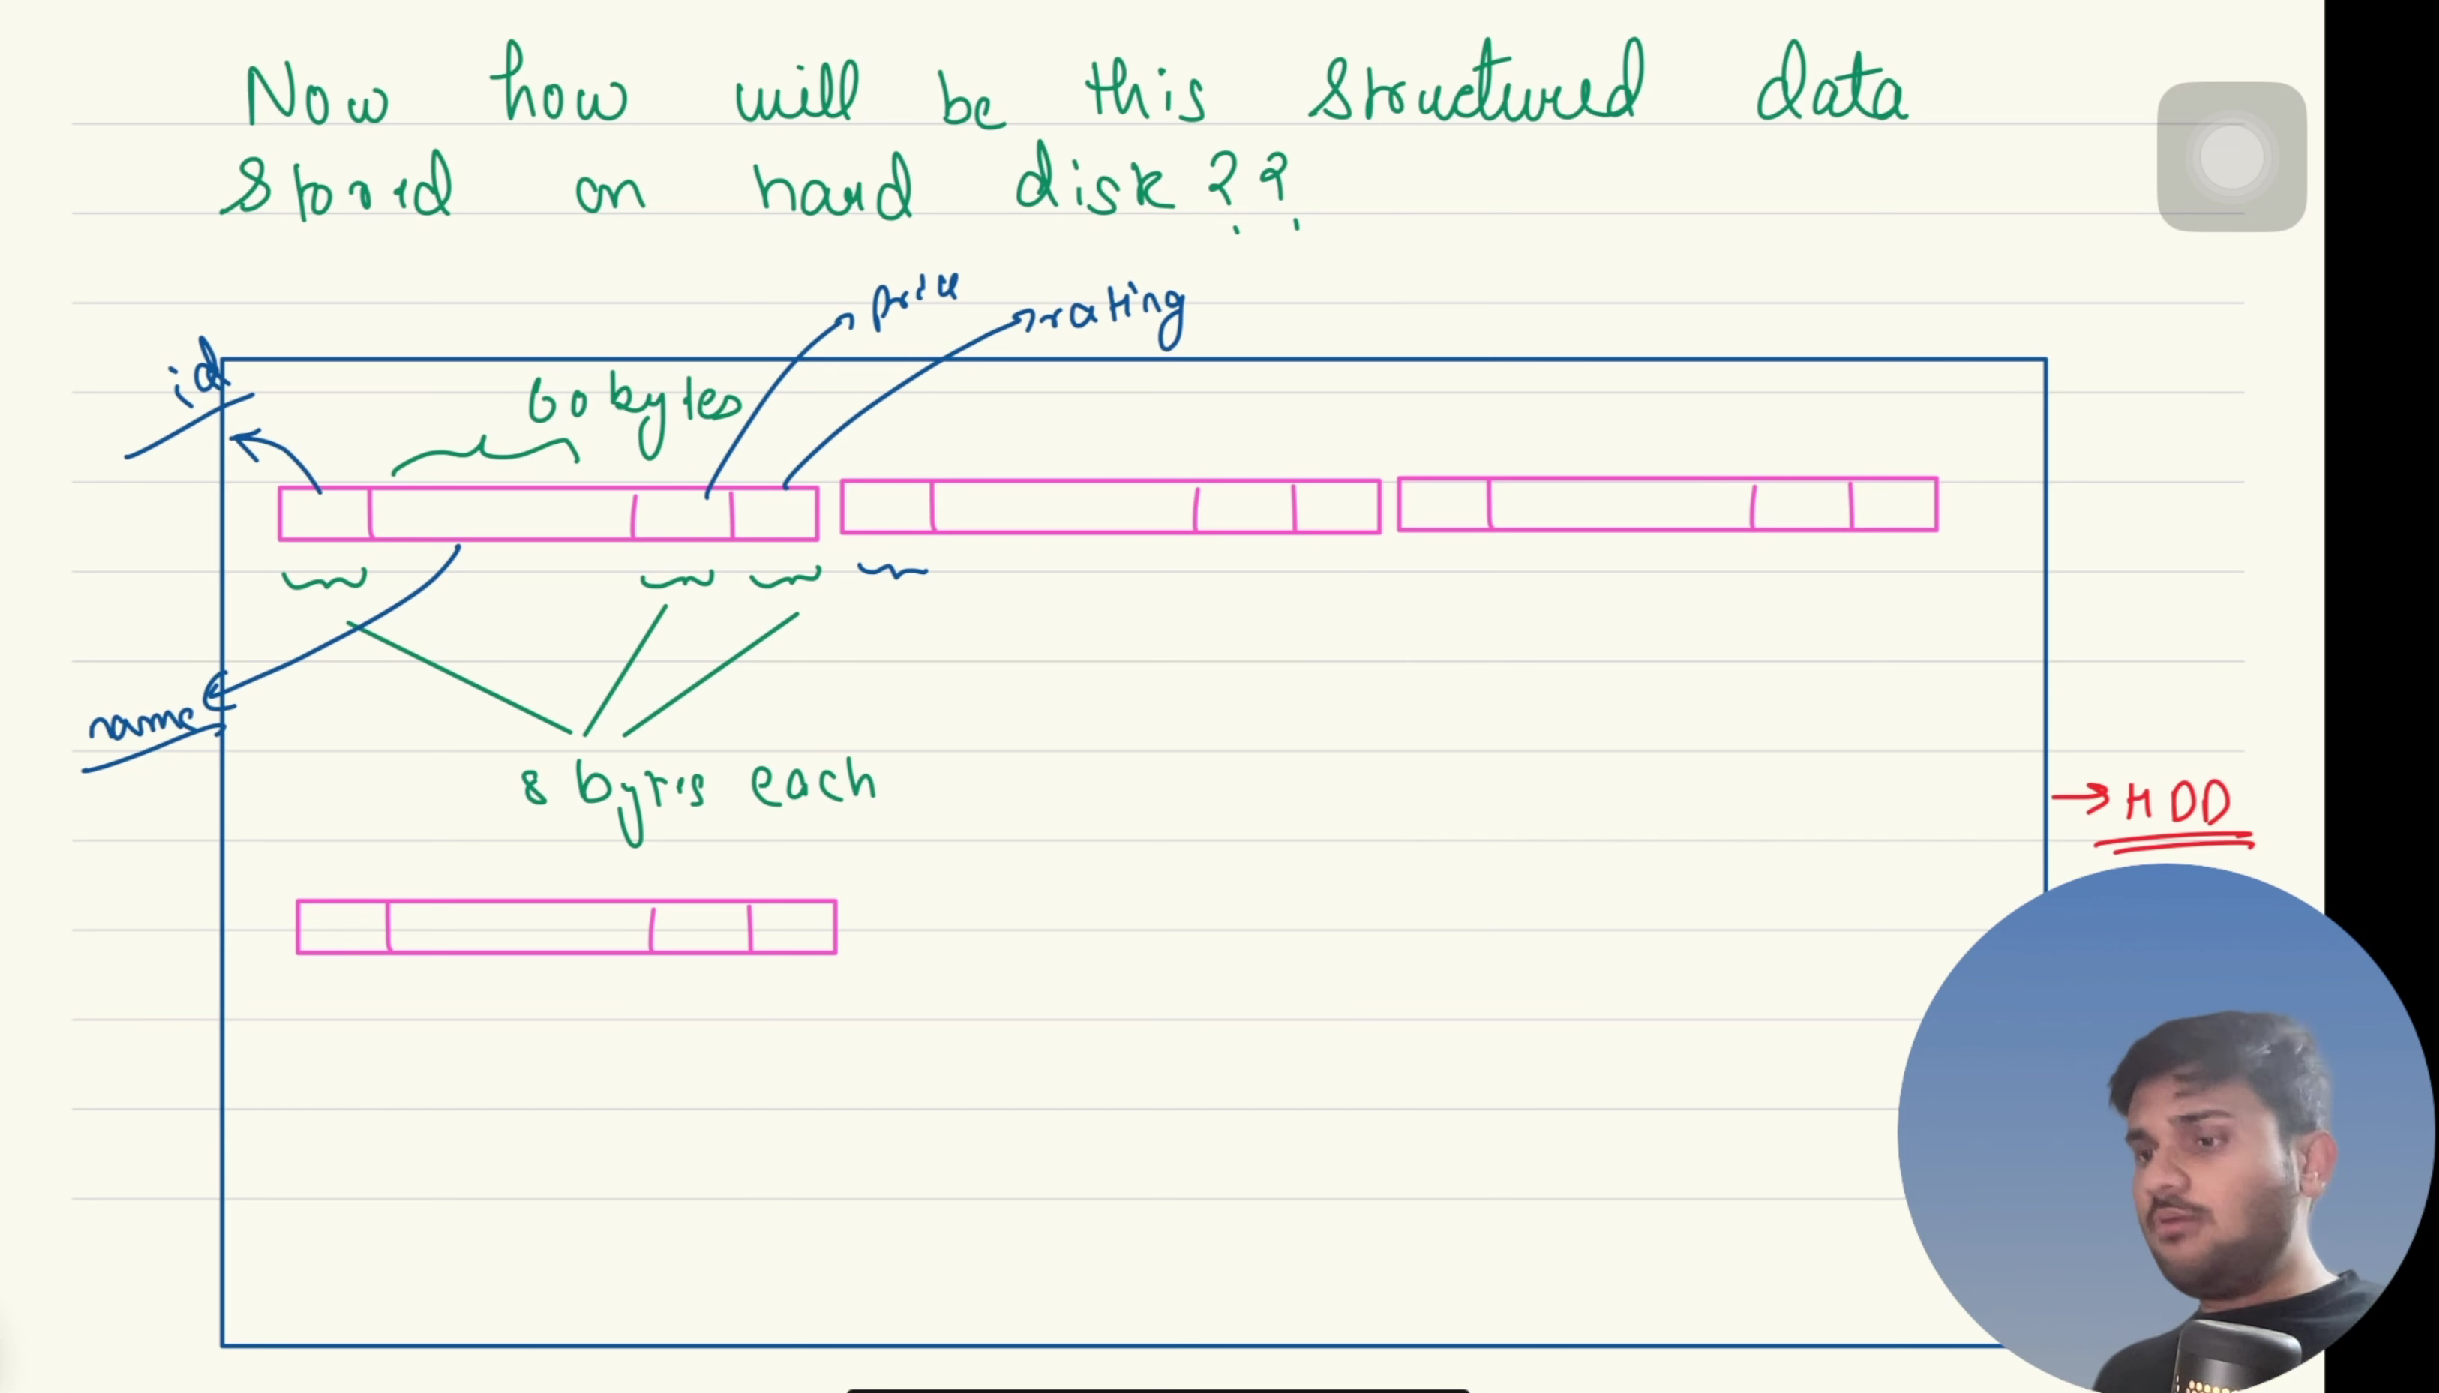 Now how will be this structured data
stored on hard disk??
price
rating
id
60 bytes
name
8 bytes each
→ HDD